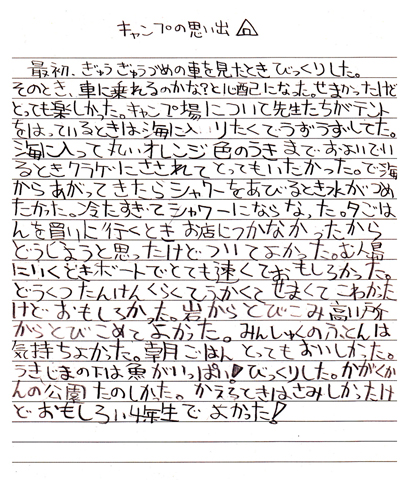 キャンプの思い出
最初、ぎゅうぎゅうづめの車を見たときびっくりした。
そのとき、車に乗れるのかな?と心配になった。せまかったけど
とっても楽しかった。キャンプ場について先生たちがテント
をはっているときは海に入りたくてうずうずしてた。
海に入って丸いオレンジ色のうきまでおよいでい
るときクラゲにさされてとってもいたかった。で海
からあがってきたらシャワーをあびるとき水がつめ
たかった。冷たすぎてシャワーにならなった。夕ごは
んを買いに行くときお店につかなかったから
どうしようと思ったけどついてよかった。む人島
にいくときボートでとても速くておもしろかった。
どうくつたんけんくらくてうかくてせまくてこわかた
けどおもしろかった。岩からとびこみ高い所
からとびこめてよかった。みんしゅくのふとんは
気持ちよかった。朝ごはんとってもおいしかった。
うきじまの下は魚がいっぱい!びっくりした。かがくか
んの公園たのしかた。かえるときはさみしかったけ
どおもしろい4年生でよかった!